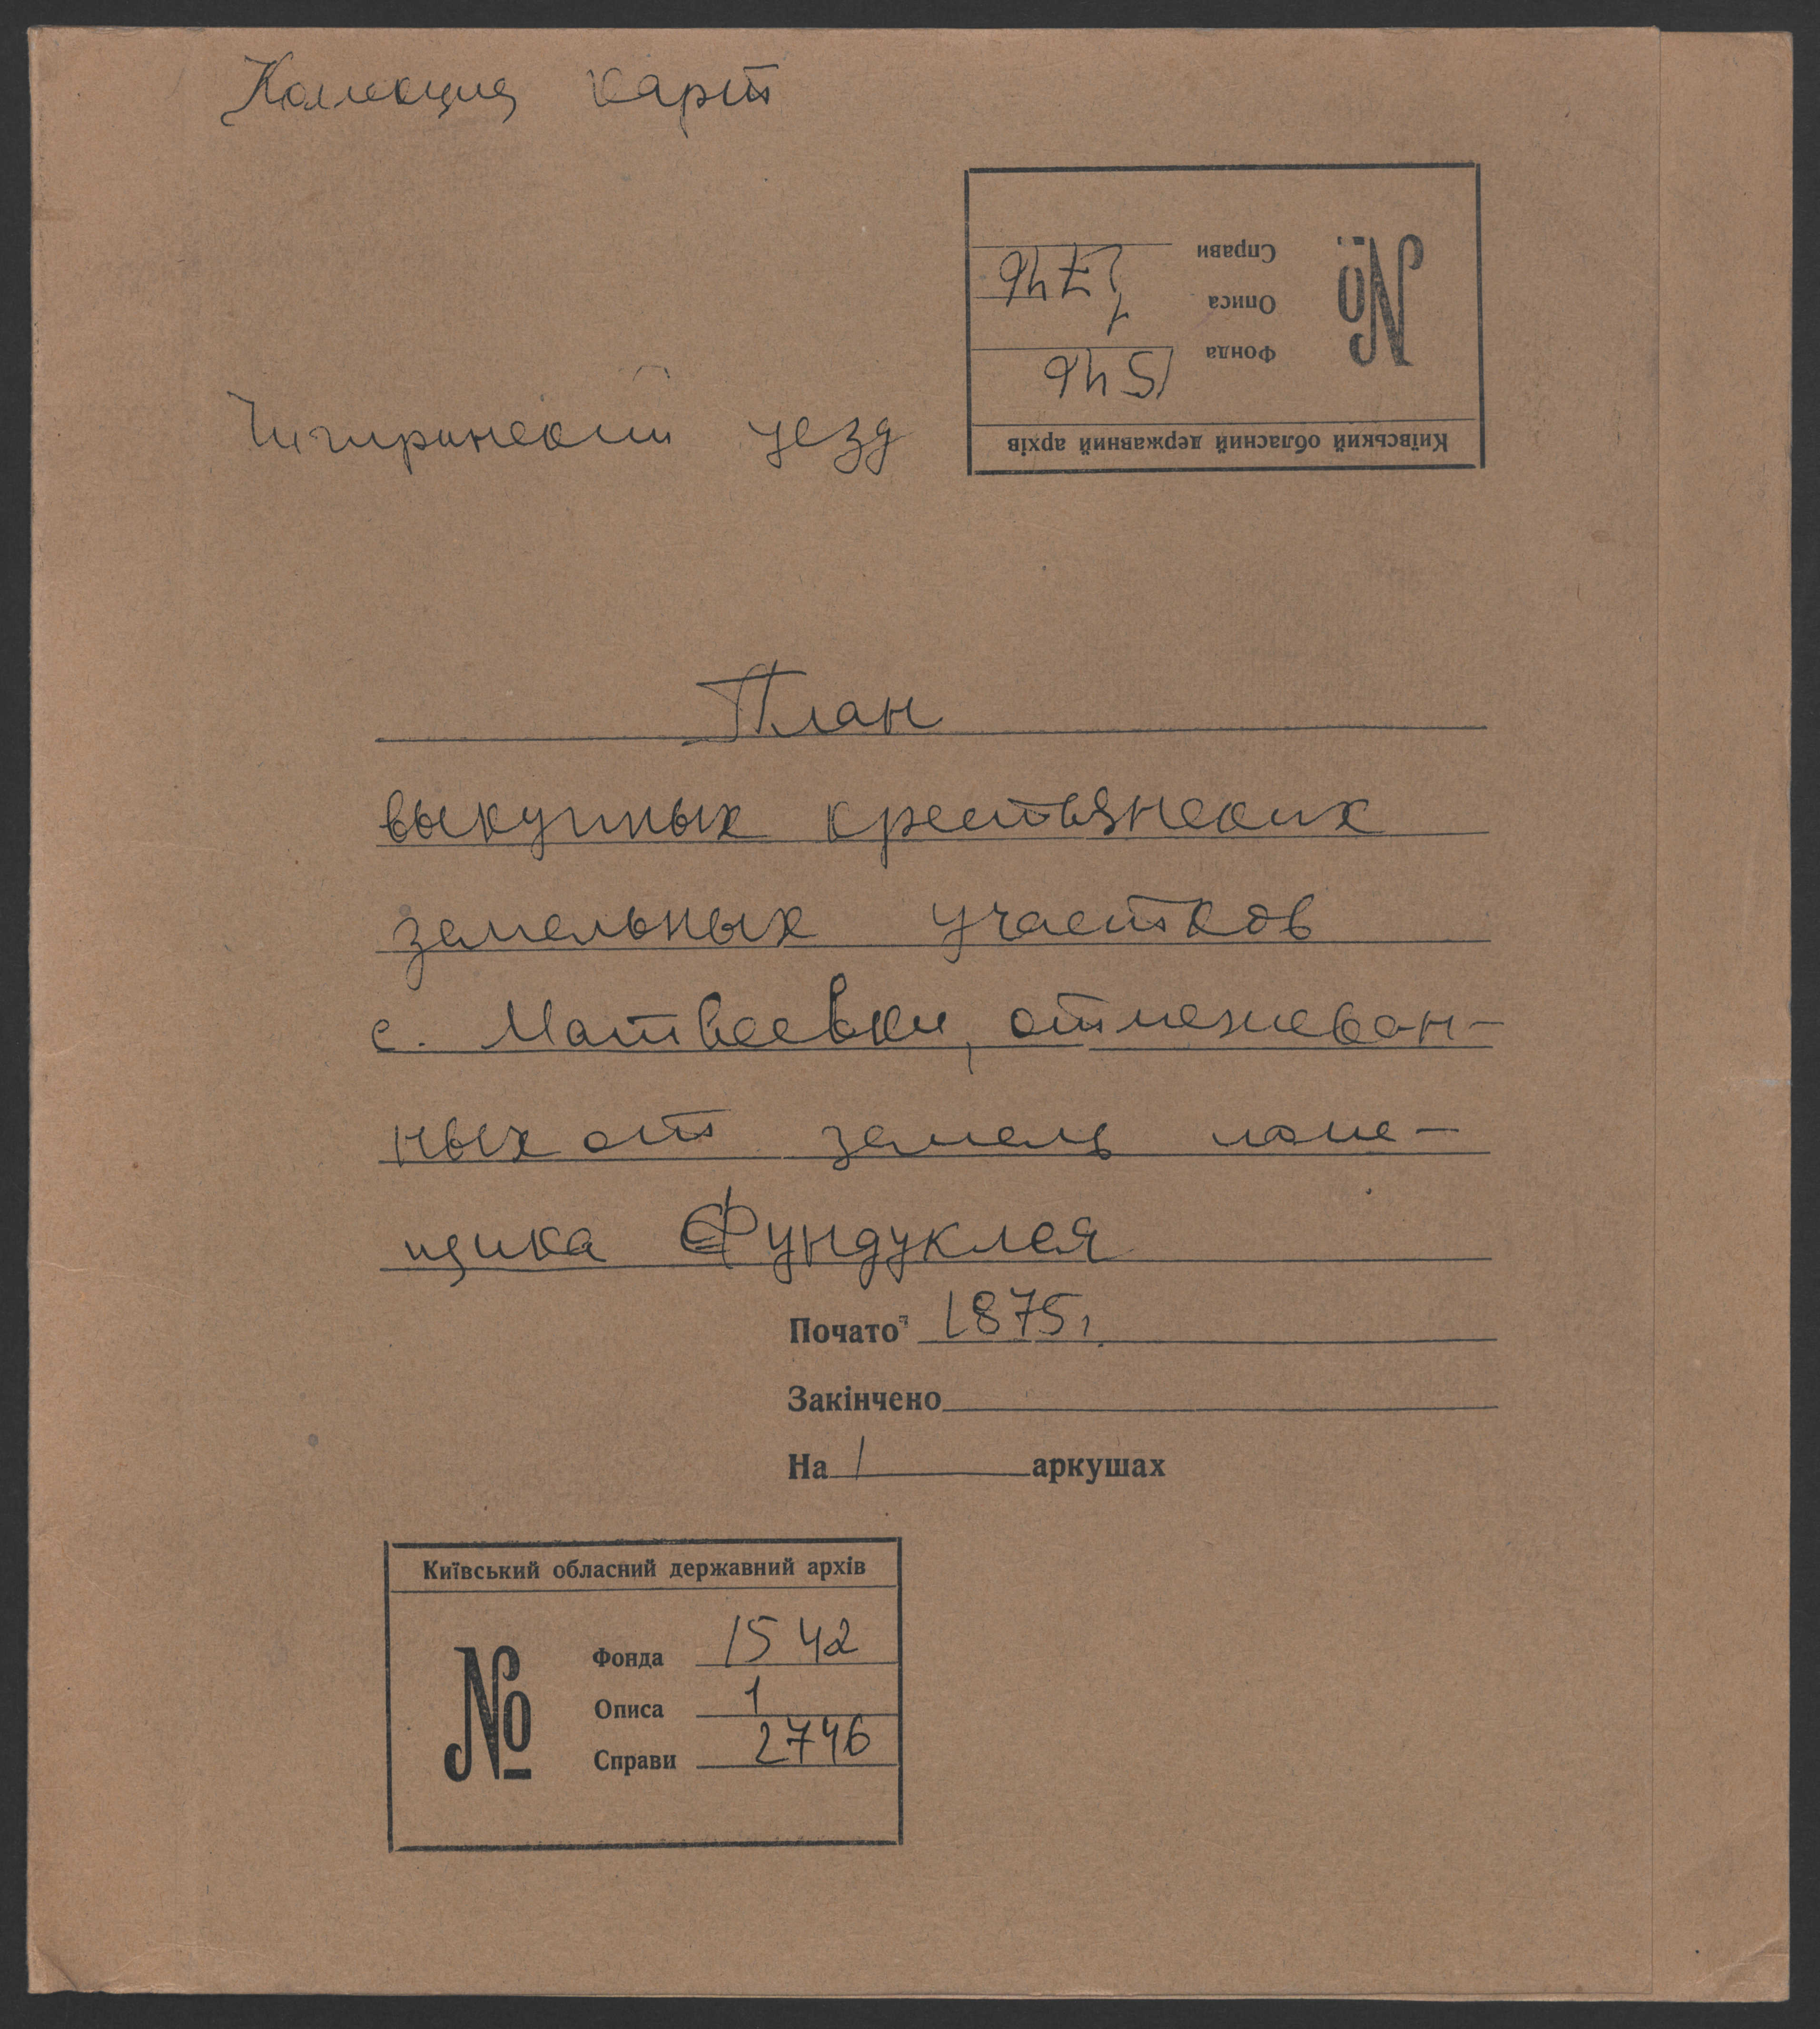 Коллекция карт
Киівський обласний державний архів
№
Фонда 1546
Описа 1
Справи 2746
Чигиринский уезд
План
выкупных крестьянских
земельных участков
с. Матвеевки, отмежеван-
ных от земель поме-
щика Фундуклея
Почато 1875г.
Закінчено
На 1 аркушах
Київський обласний державний архів
№
Фонда 1542
Описа 1
Справи 2746